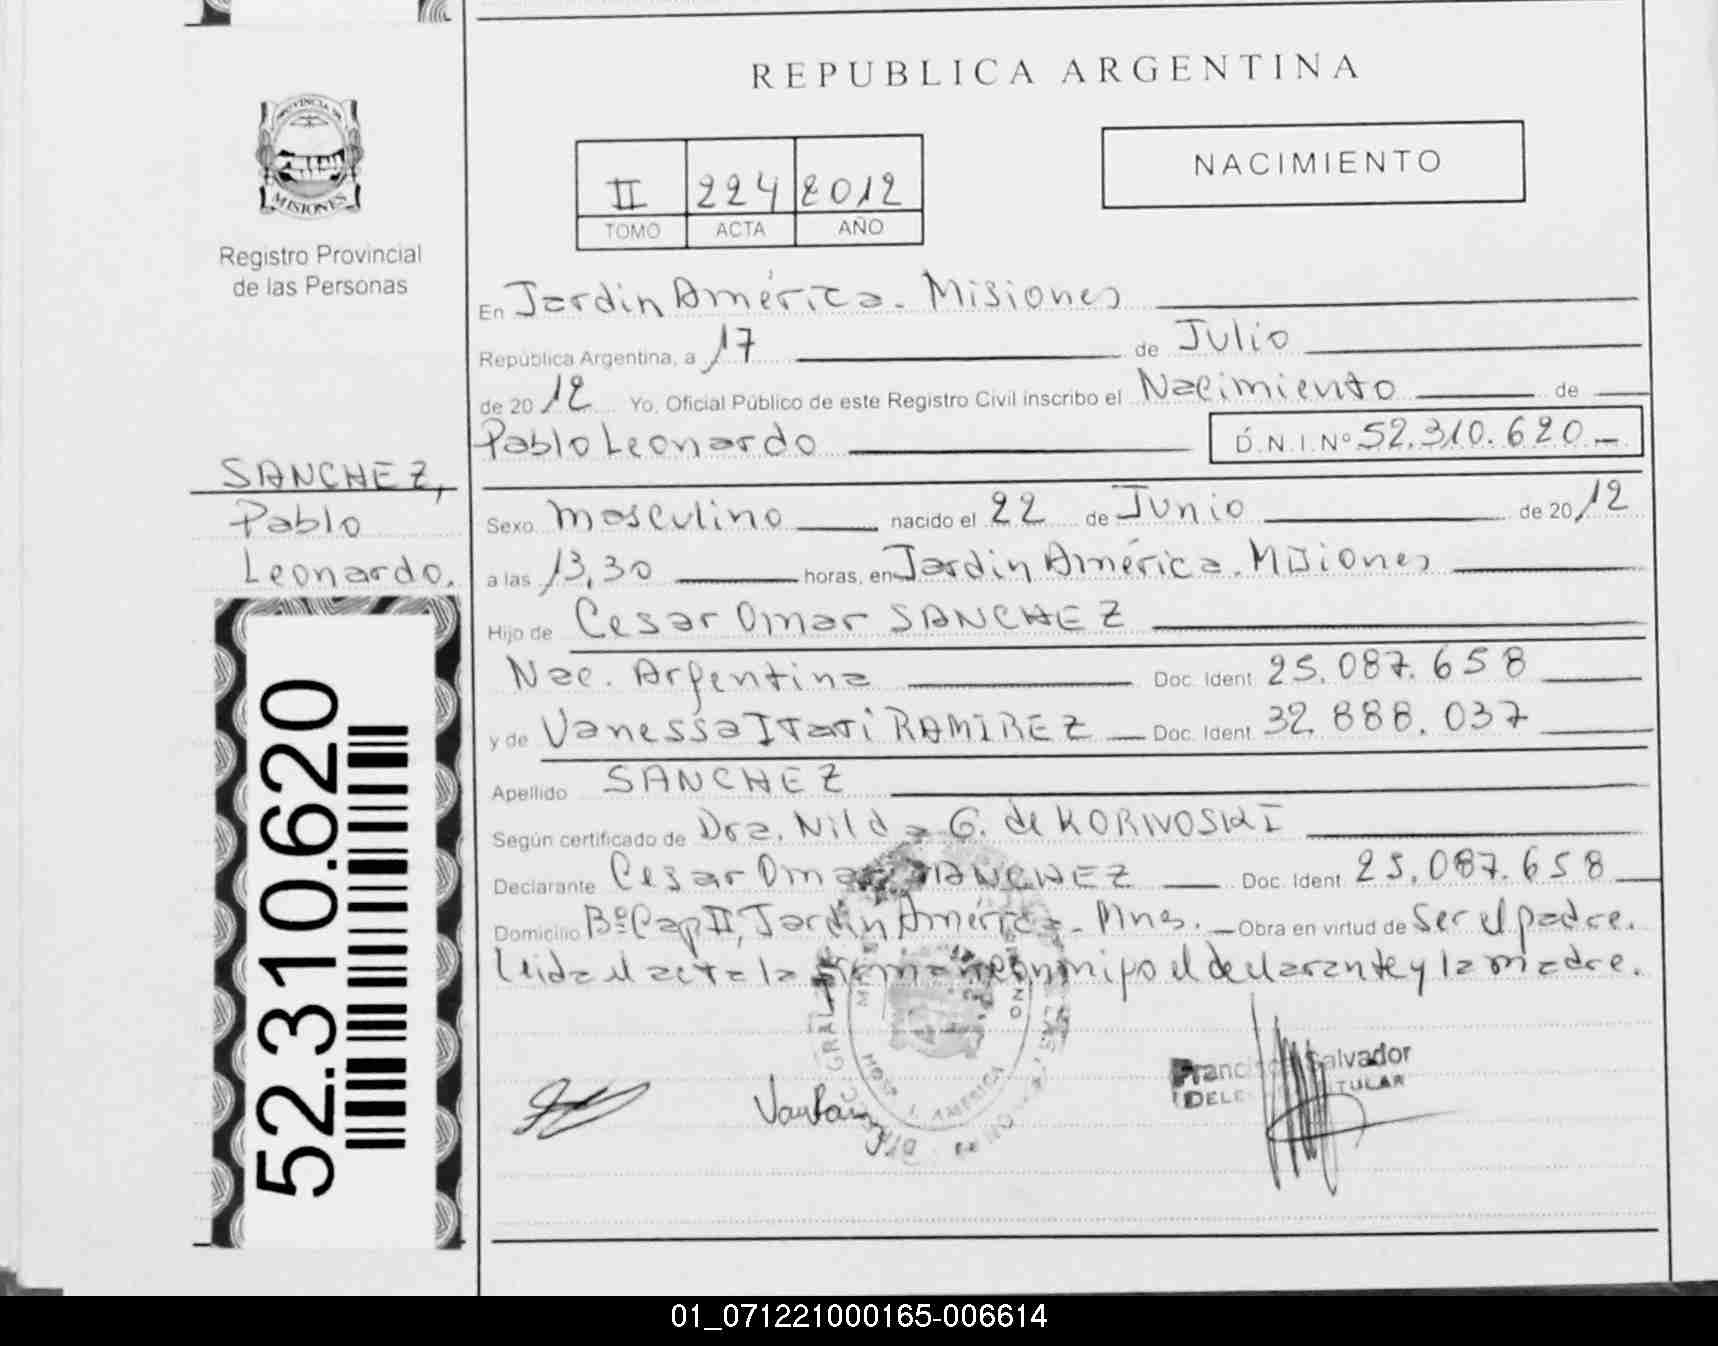 REPUBLICA ARGENTINA
PROVINCIA DE
MISIONES
Registro Provincial
de las Personas
NACIMIENTO
II 224 2012
TOMO ACTA AÑO
En Jardin América. Misiones
República Argentina, a 17 de Julio
de 2012 Yo, Oficial Público de este Registro Civil inscribo el Nacimiento de
Pablo Leonardo D.N.I.Nº 52.310.620.-
SANCHEZ,
Pablo
Leonardo.
Sexo masculino nacido el 22 de Junio de 2012
a las 13,30 horas, en Jardin América. Misiones
Hijo de Cesar Omar SANCHEZ
Nac. Argentina Doc. Ident. 25.087.658
y de Vanessa Itati RAMIREZ Doc. Ident. 32.888.037
Apellido SANCHEZ
Según certificado de Dra. Nilda G. de KORIVOSKI
Declarante Cesar Omar SANCHEZ Doc. Ident. 25.087.658
Domicilio Bº Cap II, Jardin América. Mnes. Obra en virtud de Ser el padre.
Leida el acta la firman conmigo el declarante y la madre.
52.310.620
Francisco Salvador
TITULAR
AMERICA
01_071221000165-006614